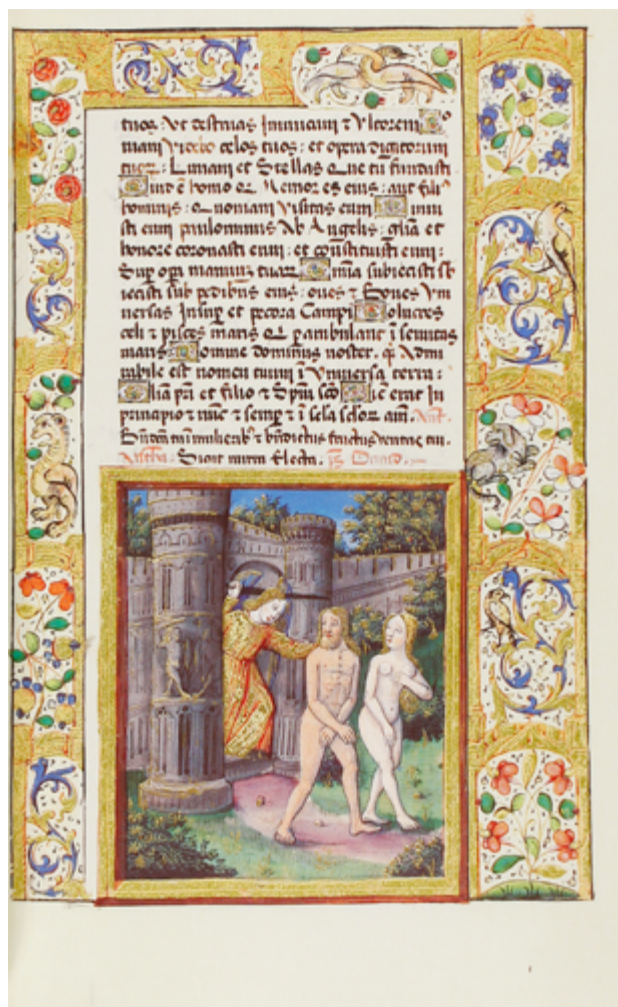 tuos: Ut destruas Inimicum ⁊ Ultorem
niam Videbo celos tuos: et opera digitorum
tuoꝝ: Lunam et Stellas Que tu fundasti
Quid ē homo qꝫ Memor es eius: aut fili⁹
hominis: Quoniam Visitas eum Minui
sti eum paulominus Ab Angelis: gl̄ia et
honore coronasti eum: et constituisti eum:
Sup opa manuum tuaꝝ Omnia subiecisti sb
iecisti sub pedibus eius: oues ⁊ Boues Vni
versas Insup et pecora Campi Volucres
celi ⁊ pisces maris Qꝫ pambulant ī semitas
maris Domine dominus noster. qꝫ Admi
rabile est nomen tuum ī Vniversa terra:
Glia pri et filio ⁊ Spui sco Sic erat In
principio ⁊ nūc ⁊ semp ⁊ ī sela seloꝝ am̄. Ant.
Bn̄dicta tu ī mulierib⁹ ⁊ bn̄dictus fructus ventris tui.
Sicut mirra Electa. ps̄ David.